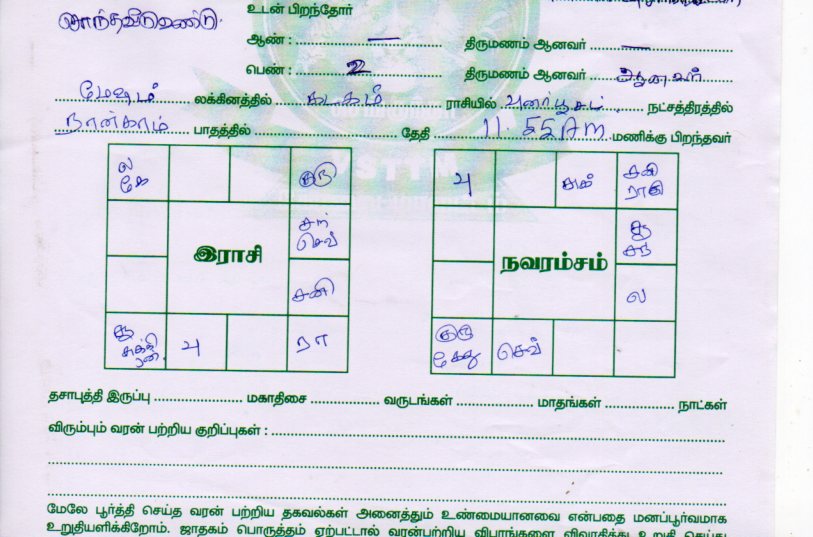 சொந்தவீடு உண்டு.
உடன் பிறந்தோர்
ஆண் : — திருமணம் ஆனவர் —
பெண் : 2 திருமணம் ஆனவர் ஆனவர்
மேஷம் லக்கினத்தில் கடகம் ராசியில் புனர்பூசம் நட்சத்திரத்தில்
நான்காம் பாதத்தில் தேதி 11.55AM மணிக்கு பிறந்தவர்
ல
கே
குரு
சந்
செவ்
இராசி
சனி
சூ
சுக்கி
ரன்.
பு
ரா
பு
சுக்
சனி
ராகு
சூ
சந்
நவரம்சம்
ல
குரு
கேது
செவ்
தசாபுத்தி இருப்பு மகாதிசை வருடங்கள் மாதங்கள் நாட்கள்
விரும்பும் வரன் பற்றிய குறிப்புகள் :
மேலே பூர்த்தி செய்த வரன் பற்றிய தகவல்கள் அனைத்தும் உண்மையானவை என்பதை மனப்பூர்வமாக
உறுதியளிக்கிறோம். ஜாதகம் பொருத்தம் ஏற்பட்டால் வரன்பற்றிய விபரங்களை விவாதித்து உறுதி செய்து